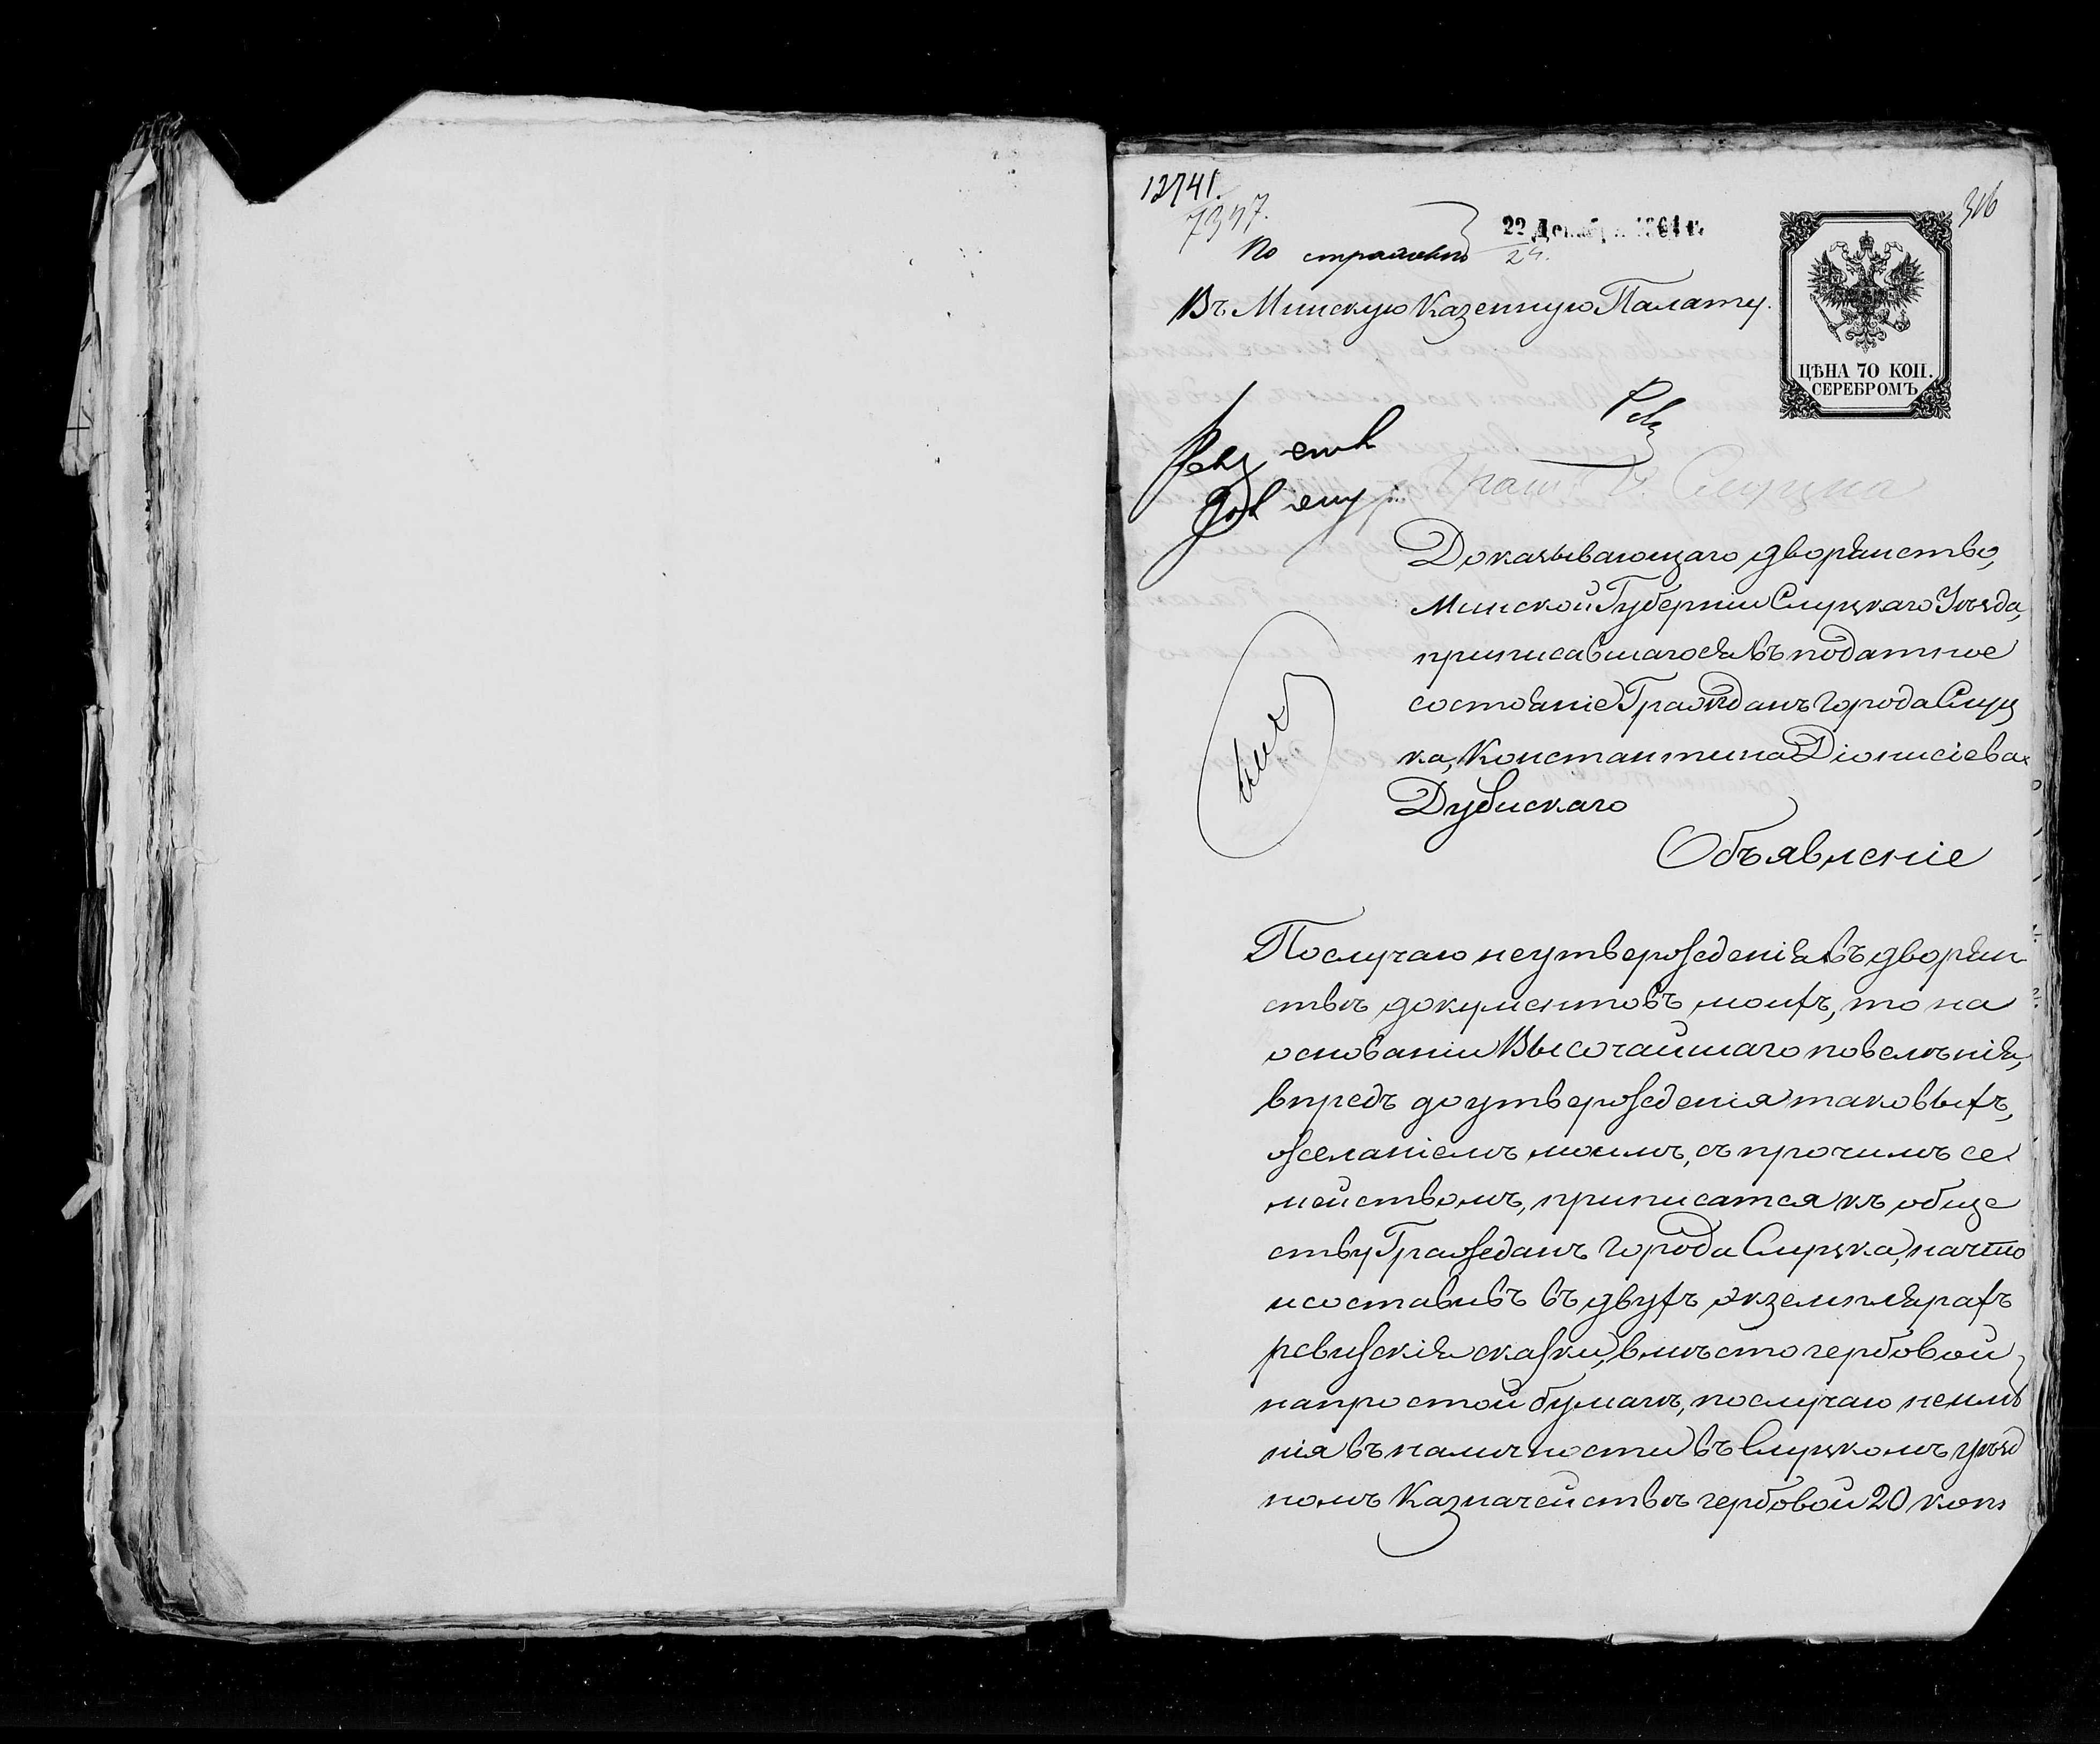 12741.
316
22 Декабр 1864 г.
24.
По
Въ Минскую Казенную Палату.
ЦѢНА 70 КОП.
СЕРЕБРОМЪ
Рев
Граж Г. Слуцка
Доказывающаго дворянство,
Минской Губерніи Слуцкаго Уѣзда,
приписавшагося въ податное
состояніе Гражданъ города Слуц
ка, Константина Діонисіева
Дубискаго
Объявленіе
Послучаю неутвержденія въ дворян
ствѣ документовъ моихъ, то на
основаніи Высочайшаго повелѣнія,
впредъ до утвержденія таковыхъ,
желаніемъ моимъ, съ прочимъ се
мействомъ, приписатся къ обще
ству Гражданъ города Слуцка, начто
и составивъ въ двухъ экземплярахъ
ревизскія сказки, вмѣсто гербовой
на простой бумагѣ, послучаю неимѣ
нія въ наличности въ Слуцкомъ уѣзд
номъ Казначействѣ гербовой 20 коп